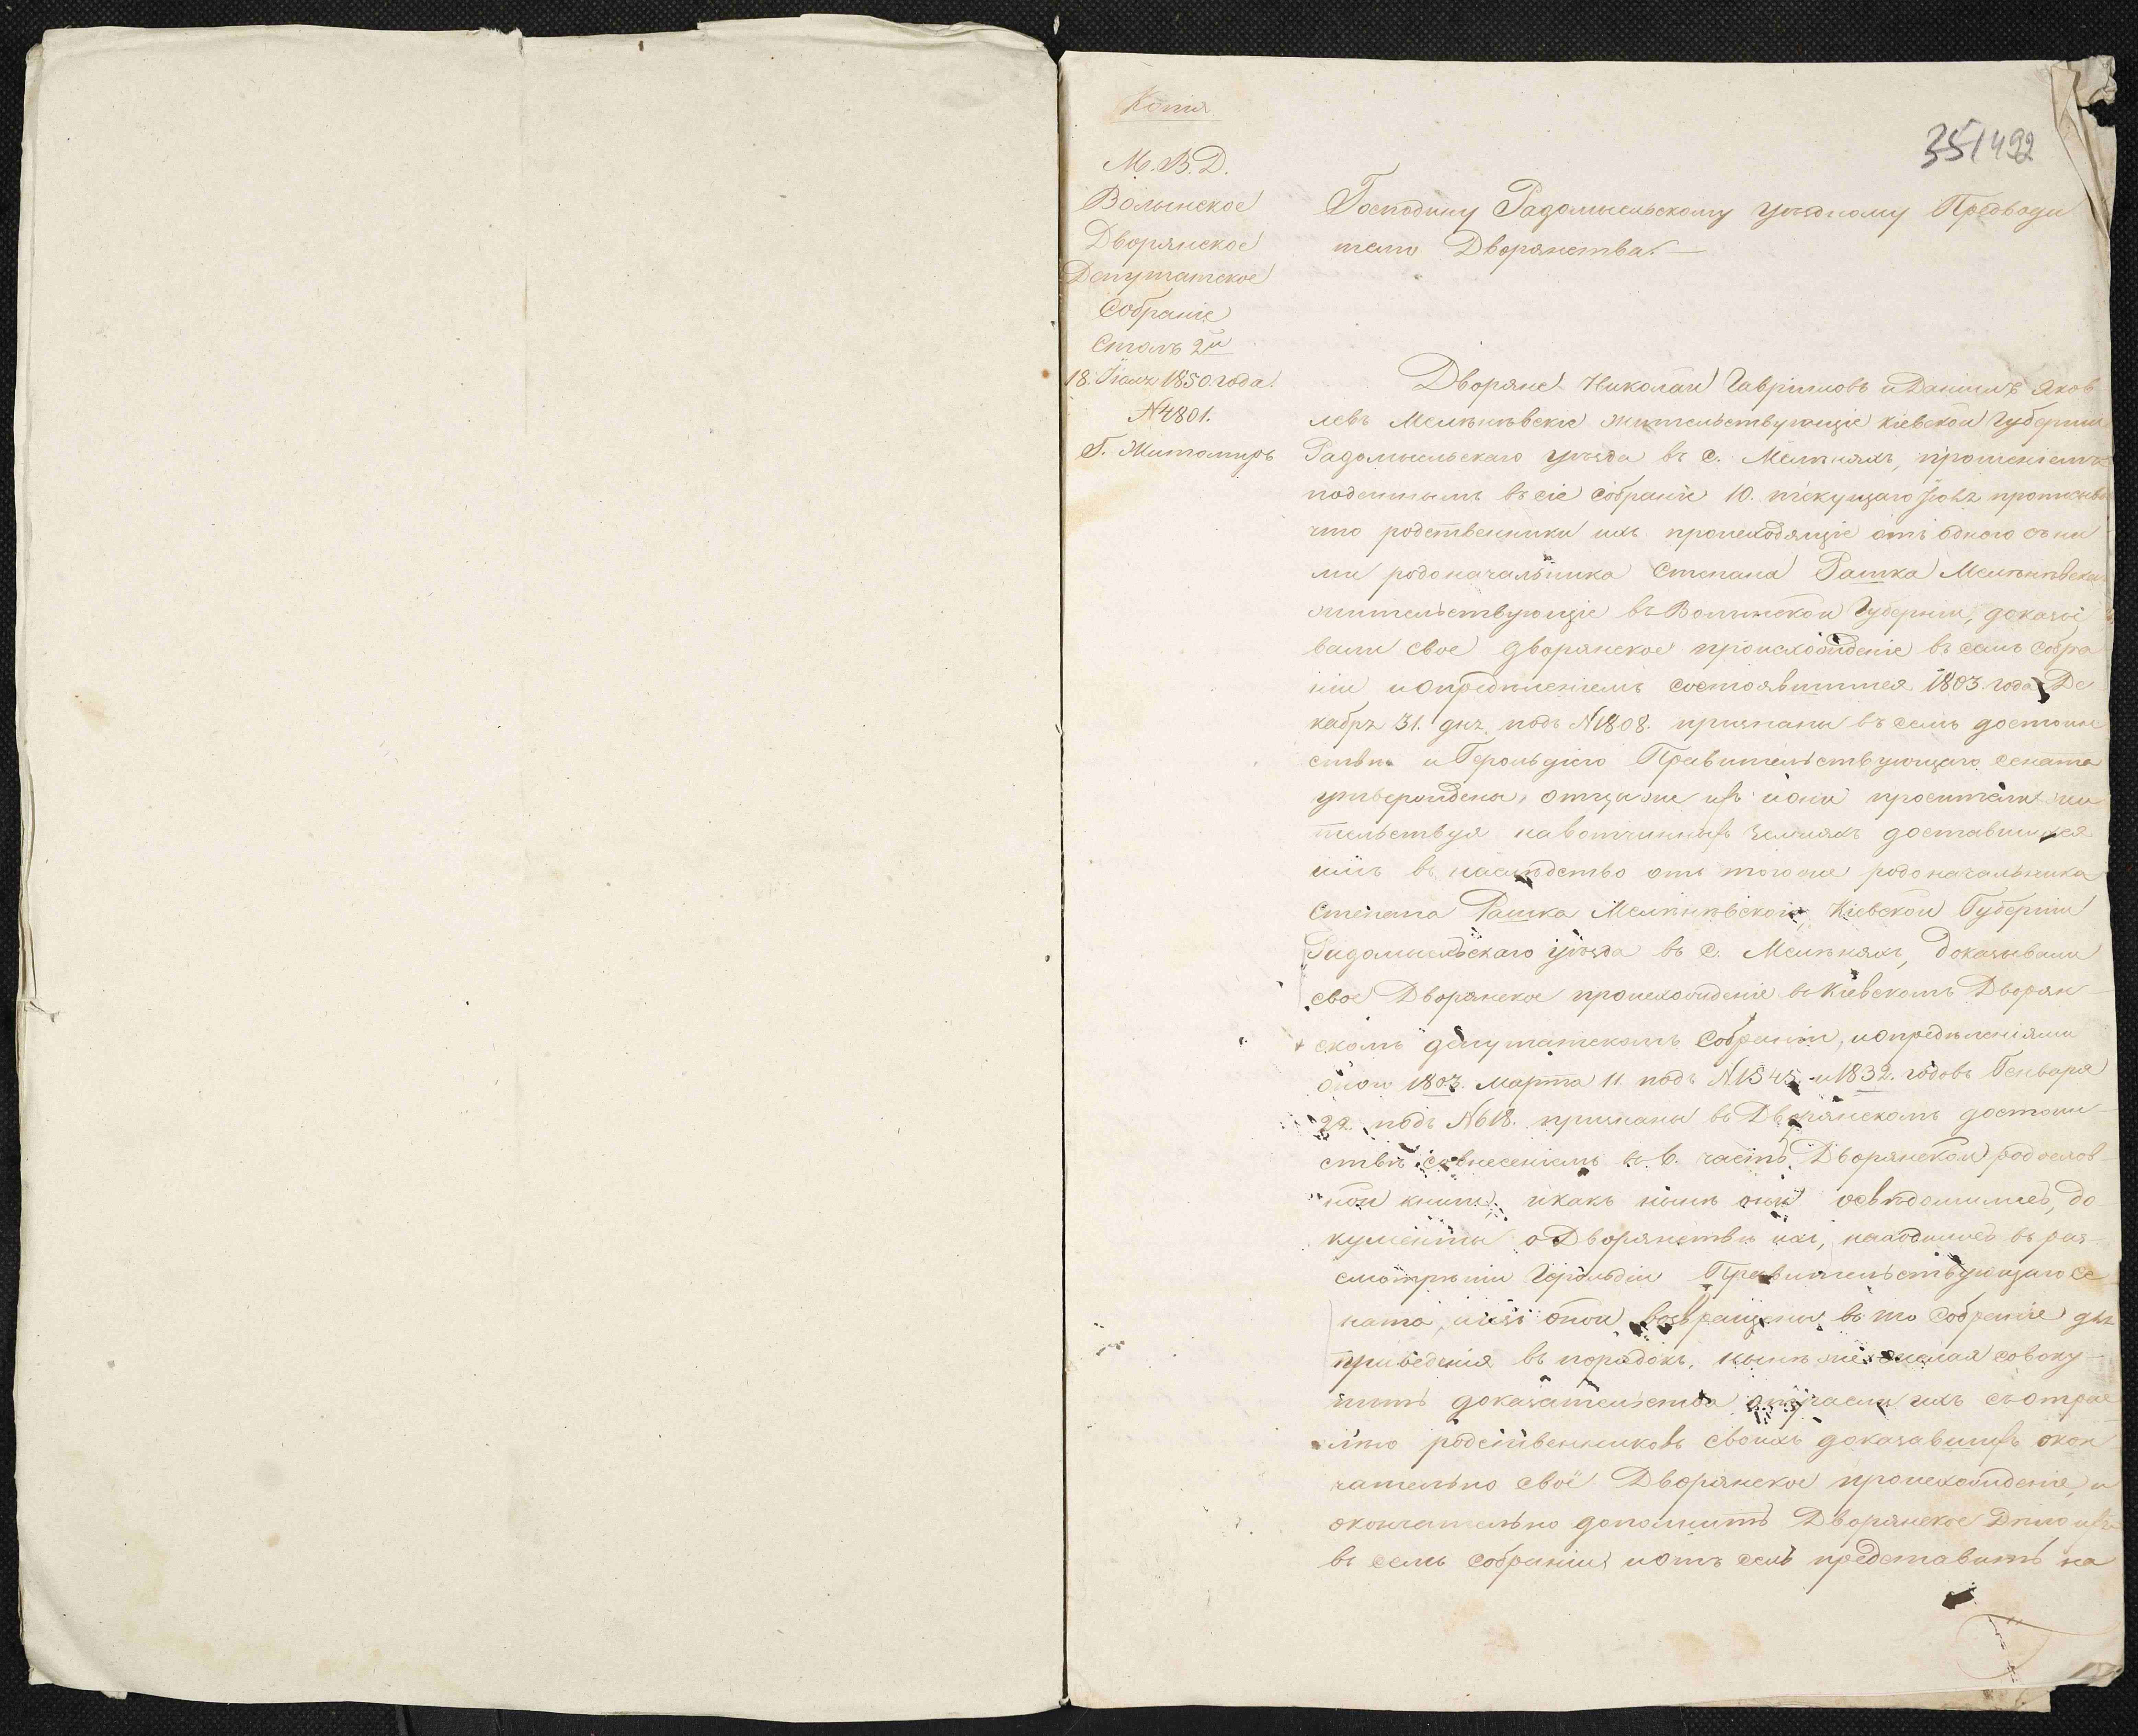 Копія
351 492
М.В.Д.
Волынское
Дворянское
Депутатское
Собраніе
Столъ 2й
18. Іюля 1850 года.
№ 4801.
Г. Житомиръ
Господину Радомысльскому Уѣздному Предводи
телю Дворянства.
Дворяне Николай Гавриловъ и Даніилъ Яков
левъ Мелѣнѣвскіе жительствующіе Кіевской Губерніи
Радомысльскаго уѣзда въ с. Мелѣняхъ, прошеніемъ
поданнымъ въ сіе Собраніе 10. текущаго прописывая
что родственники ихъ происходящіе отъ одного съ ни
ми родоначальника Степана Рашка Мелѣнѣвскаго
жительствующіе въ Волынской Губерніи, доказы
вали свое дворянское происхожденіе въ семъ Собра
ніи и опредѣленіемъ состоявшимся 1803. года Де
кабря 31. дня подъ № 1808. признаны въ семъ достоин
ствѣ и Герольдіею Правительствующаго Сената
утверждены, отцы же ихъ и они просители жи
тельствуя на вотчинныхъ земляхъ доставшихся
имъ въ наслѣдство отъ того же родоначальника
Степана Рашка Мелѣнѣвского Кіевской Губерніи
Радомысльскаго уѣзда въ с. Мелѣняхъ, доказывали
свое Дворянское происхожденіе въ Кіевскомъ Дворян
скомъ депутатскомъ Собраніи, и опредѣленіями
онаго 1803. Марта 11 подъ № 1545. и 1832. годовъ Генваря
22. подъ № 618. признаны въ Дворянскомъ достоин
ствѣ со внесеніемъ въ 6. часть Дворянской родослов
ной книги, и какъ нынѣ они освѣдомились, до
кументы о Дворянствѣ ихъ, находились въ раз
смотрѣніи Герольдіи Правительствующаго Се
ната, и изъ оной возвращены въ то Собраніе для
приведенія въ порядокъ, нынѣ же желая совоку
пить доказательства отрасли ихъ съ отрас
лію родственниковъ своихъ доказавшихъ окон
чательно своё Дворянское происхожденіе, и
окончательно дополнить Дворянское Дѣло ихъ
въ семъ Собраніи и отъ сель представить на